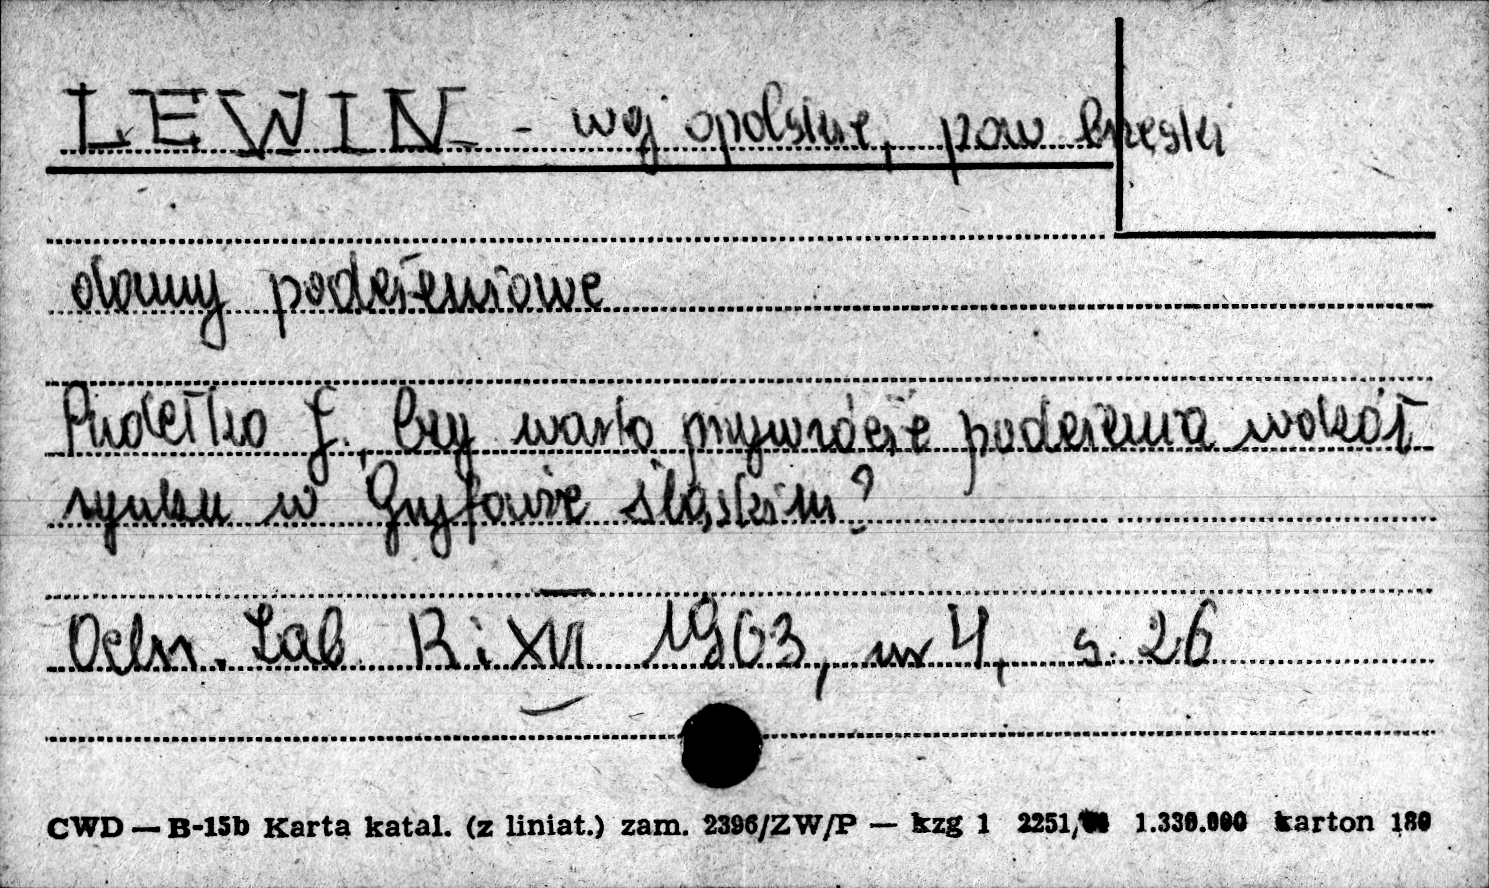 LEWIN - woj opolskie, pow brzeski
domy podcieniowe
Pudełko J., Czy warto przywrócić podcienia wokół
rynku w Gryfowie Śląskim?
Ochr. Zab. R: XVI 1963, nr 4, s. 26
CWD — B-15b Karta katal. (z liniat.) zam. 2396/ZW/P — kzg 1 2251/ 1.330.000 karton 180